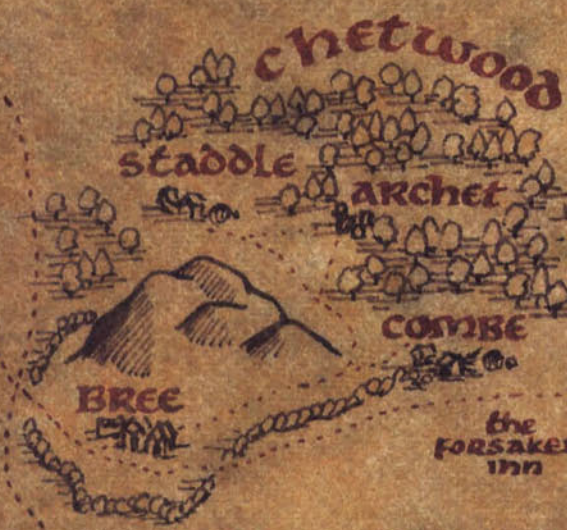 chetwood
staddle
archet
combe
bree
the
forsaken
inn